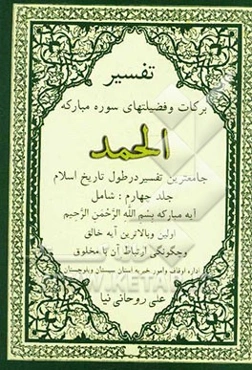 تفسیر
برکات و فضیلتهای سوره مبارکه
الحمد
جامعترین تفسیر در طول تاریخ اسلام
جلد چهارم : شامل
آیه مبارکه بِسْمِ اللَّهِ الرَّحْمَنِ الرَّحِیمِ
اولین وبالاترین آیه خالق
وچگونگی ارتباط آن با مخلوق
اداره اوقاف وامور خیریه استان سیستان وبلوچستان
علی روحانی نیا